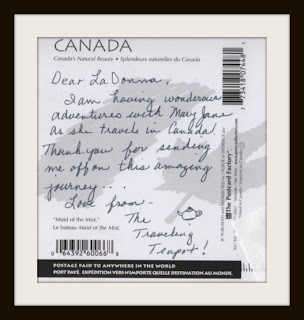 CANADA
Canada's Natural Beauty • Splendeurs naturelles du Canada
Dear LaDonna,
I am having wonderous
adventures with Mary Jane
as she travels in Canada!
Thank you for sending
me off on this amazing
journey...
Love from -
The
Traveling
Teapot!
"Maid of the Mist."
Le bateau Maid of the Mist.
0 64392 60066 8
POSTAGE PAID TO ANYWHERE IN THE WORLD
PORT PAYÉ. EXPÉDITION VERS N'IMPORTE QUELLE DESTINATION AU MONDE.
The Postcard Factory